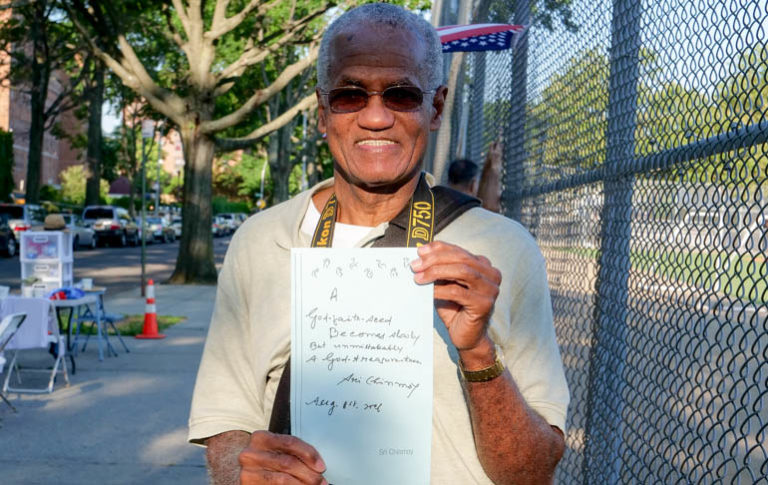 kon
D750
A
God-faith-seed
Becomes slowly
But unmistakably
A God-treasure-tree
Sri Chinmoy
Aug.
Sri Chinmoy